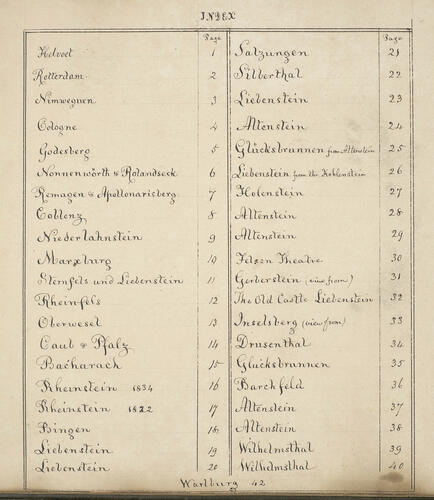 INDEX
Page
Helvoet 1
Rotterdam 2
Nimweguen 3
Cologne 4
Godesberg 5
Nonnenwörth & Rolandseck 6
Remagen & Apollonarisberg 7
Coblenz 8
Niederlahnstein 9
Marxburg 10
Sternfels und Liebenstein 11
Rheinfels 12
Oberwesel 13
Caub & Pfalz 14
Bacharach 15
Rheinstein 1834 16
Rheinstein 1822 17
Bingen 18
Liebenstein 19
Liebenstein 20
Page
Salzungen 21
Silberthal 22
Liebenstein 23
Altenstein 24
Glücksbrunnen from Altenstein 25
Liebenstein from the Hohlenstein 26
Holenstein 27
Altenstein 28
Altenstein 29
Felsen Theatre 30
Gerberstein (view from) 31
The Old Castle Liebenstein 32
Inselsberg (view from) 33
Drusenthal 34
Glucksbrunnen 35
Barchfeld 36
Altenstein 37
Altenstein 38
Wilhelmsthal 39
Wilhelmsthal 40
Wartburg 42